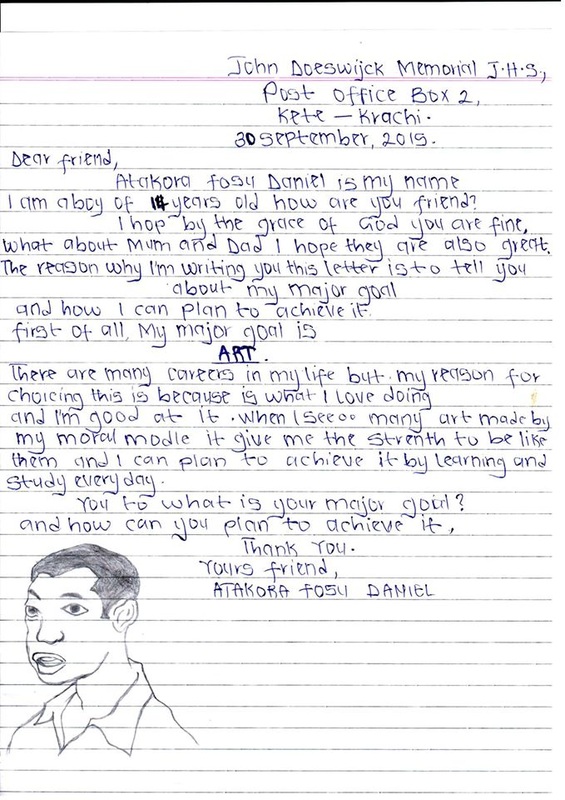 John Doeswijck Memorial J.H.S.,
Post Office Box 2,
Kete - Krachi.
30 September, 2015.
Dear friend,
Atakora fosu Daniel is my name
I am a boy of 14 years old how are you friend?
I hop by the grace of God you are fine,
What about Mum and Dad I hope they are also great.
The reason why I'm writing you this letter is to tell you
about my major goal
and how I can plan to achieve it.
first of all, My major goal is
ART.
There are many careers in my life but. my reason for
choicing this is because is what I love doing
and I'm good at it. When I see oo many art made by
my moral modle it give me the strenth to be like
them and I can plan to achieve it by learning and
study everyday.
You to what is your major goal?
and how can you plan to achieve it,
Thank You.
Yours friend,
ATAKORA fOSU DANIEL